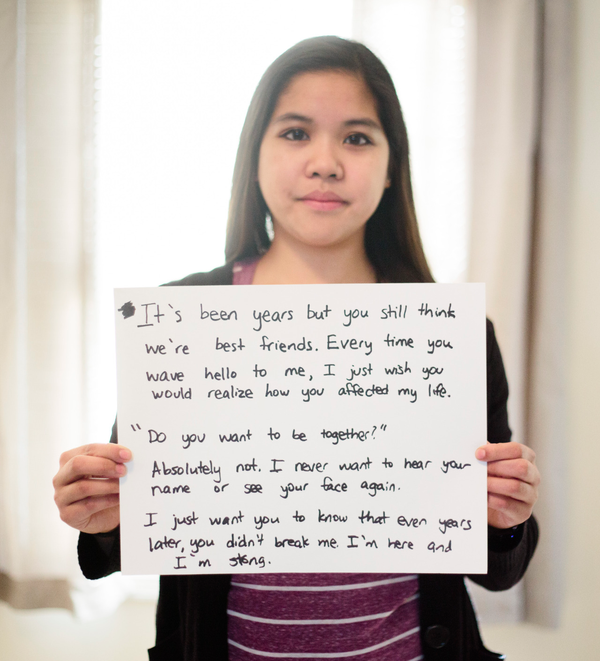 It's been years but you still think
we're best friends. Every time you
wave hello to me, I just wish you
would realize how you affected my life.
"Do you want to be together?"
Absolutely not. I never want to hear your
name or see your face again.
I just want you to know that even years
later, you didn't break me. I'm here and
I'm strong.